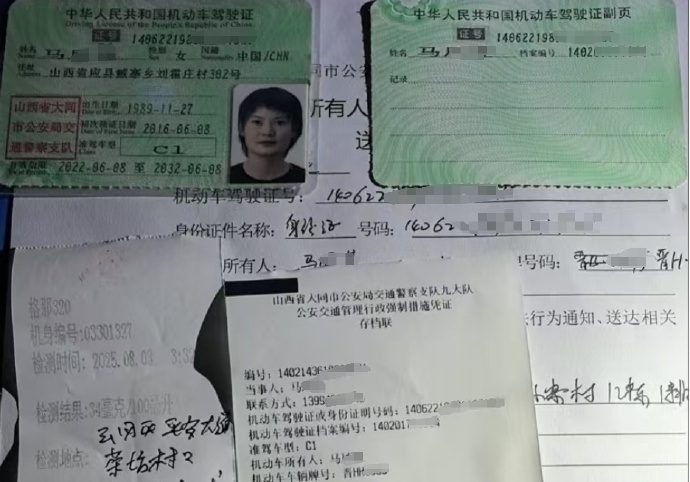 中华人民共和国机动车驾驶证
Driving License of the People's Republic of China
证号 140622198
姓名 马 性别 女 国籍 中国/CHN
住址
山西省应县臧寨乡刘霍庄村302号
山西省大同
市公安局交
通警察支队
出生日期 1989-11-27
初次领证日期 2016-06-08
准驾车型 C1
有效期限 2022-06-08 至 2032-06-08
中华人民共和国机动车驾驶证副页
证号 14062219
姓名 马 档案编号 1402
记录
同市公安
所有人
送
机动车驾驶证号: 140622
身份证件名称: 身份证 号码: 140622
所有人: 马 号码: 晋 晋H·
行为通知、送达相关
村 12栋
机身编号:03301327
检测时间:2025.08.03 3:3
检测结果:34毫克/100毫升
检测地点:
山西省大同市公安局交通警察支队九大队
公安交通管理行政强制措施凭证
存档联
编号: 14021436
当事人: 马
联系方式: 1399
机动车驾驶证或身份证明号码: 140622
机动车驾驶证档案编号: 140201
准驾车型: C1
机动车所有人: 马
机动车车辆牌号: 晋H